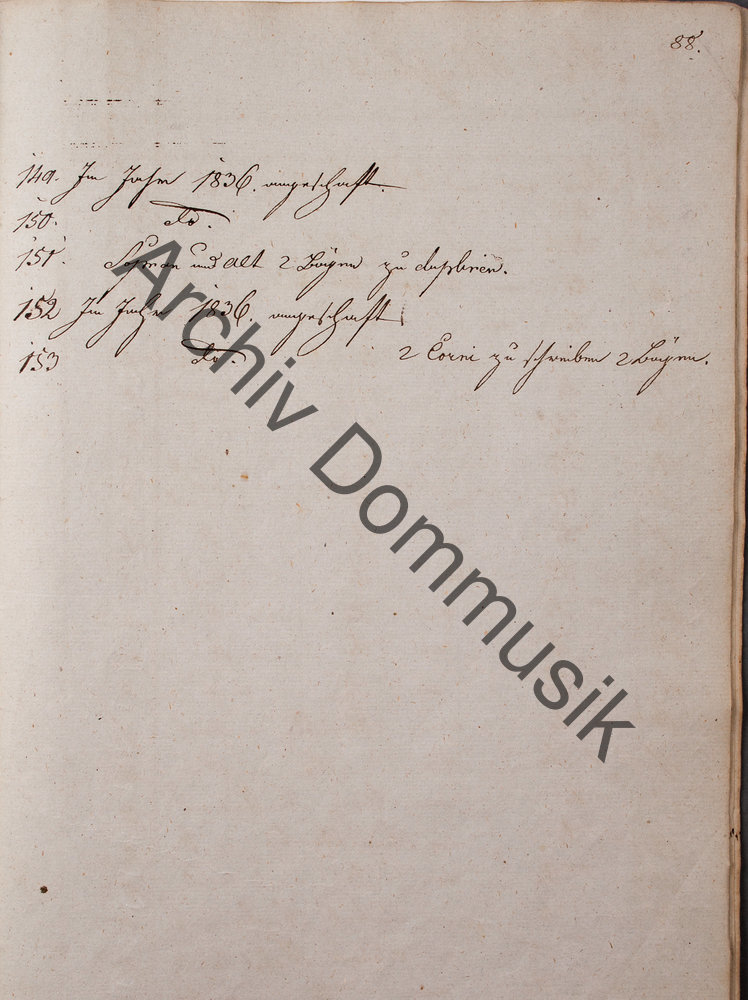 88.
149. Im Jahr 1836. angeschaft.
150. do.
151. Sopran und Alt 2 Bögen zu duplieren.
152 Im Jahr 1836. angeschaft
153 do. 2 Corni zu schreiben 2 Bögen.
Archiv Dommusik